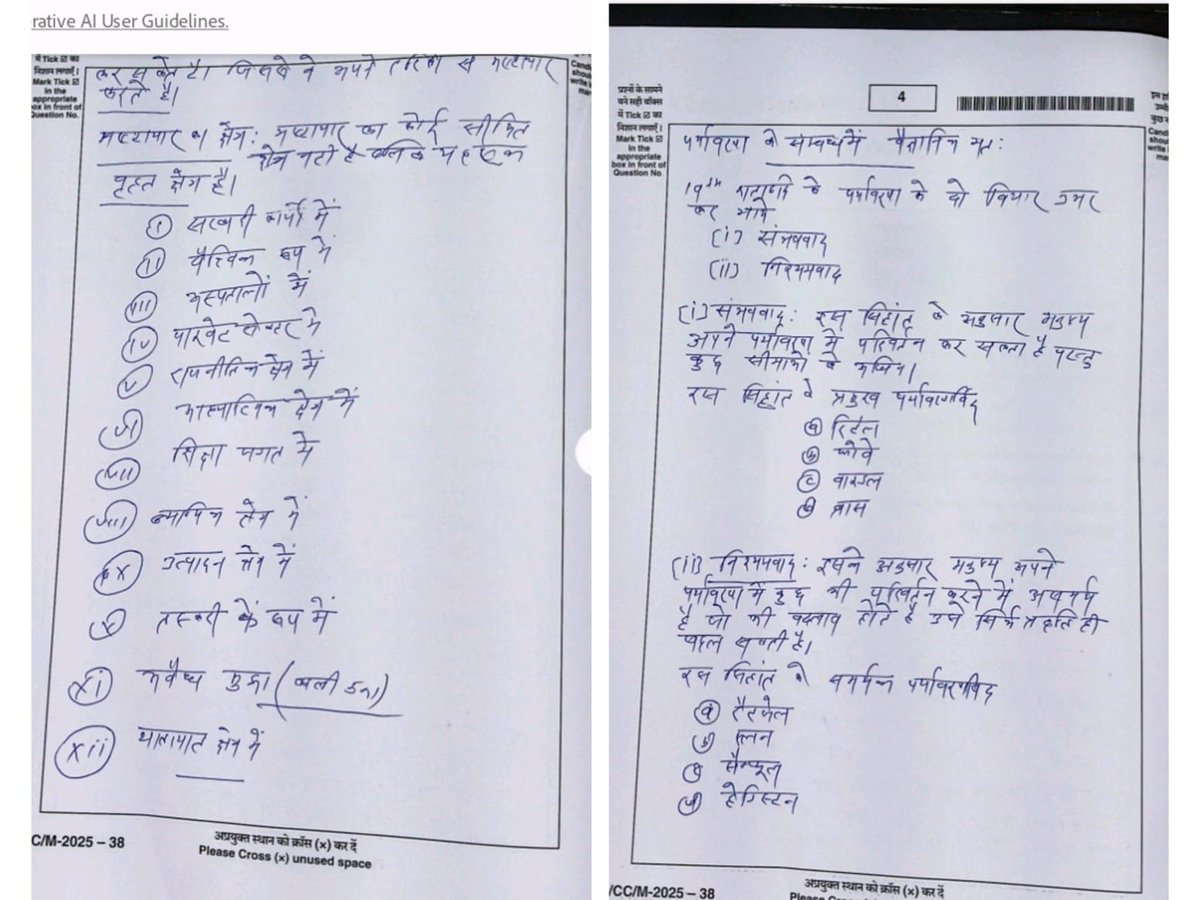 rative AI User Guidelines.
में Tick ☑ का
निशान लगाएँ।
Mark Tick ☑
in the
appropriate
box in front of
Question No.
कर सकते है। जिससे वे अपने तरीका से भ्रष्टाचार
करते है।
भ्रष्टाचार का क्षेत्र: भ्रष्टाचार का कोई सीमित
क्षेत्र नही है बल्कि यह एक
वृहत क्षेत्र है।
(i) सरकारी कार्यो में
(ii) वैश्विक रूप में
(iii) अस्पतालों में
(iv) प्राइवेट सेक्टर मे
(v) राजनीतिक क्षेत्र में
(vi) क्षेत्र में
(vii) शिक्षा जगत में
(viii) न्यायिक क्षेत्र में
(ix) उत्पादन क्षेत्र में
(x) तस्करी के रूप में
(xi) अवैध मुद्रा
(xii) यातायात क्षेत्र में
C/M-2025 – 38
अप्रयुक्त स्थान को क्रॉस (×) कर दें
Please Cross (×) unused space
प्रश्नों के सामने
बने सही बॉक्स
में Tick ☑ का
निशान लगाएँ।
Mark Tick ☑
in the
appropriate
box in front of
Question No
4
पर्यावरण के सम्बन्ध में वैज्ञानिक मत:
19th शताब्दी के पर्यावरण के दो विचार उभर
कर आये
(i) संभववाद
(ii) निश्चयवाद
(i) संभववाद: इस सिद्धांत के अनुसार मनुष्य
अपने पर्यावरण मे परिवर्तन कर सकता है परन्तु
कुछ सीमाओ के
इस सिद्धांत के प्रमुख पर्यावरणविद
(a) रिटेल
(b)
(c)
(d) ब्रास
(ii) निश्चयवाद: इसके अनुसार मनुष्य अपने
पर्यावरण में कुछ भी परिवर्तन करने में असमर्थ
है जो भी बदलाव होते है उसे सिर्फ प्रकृति ही
बदल सकती है।
इस सिद्धांत के समर्थक पर्यावरणविद
(a) रैटजेल
(b)
(c) सैम्पुल
(d) हंटिंगटन
/CC/M-2025 – 38
अप्रयुक्त स्थान को क्रॉस (×) कर दें
Please Cross (×) unused space